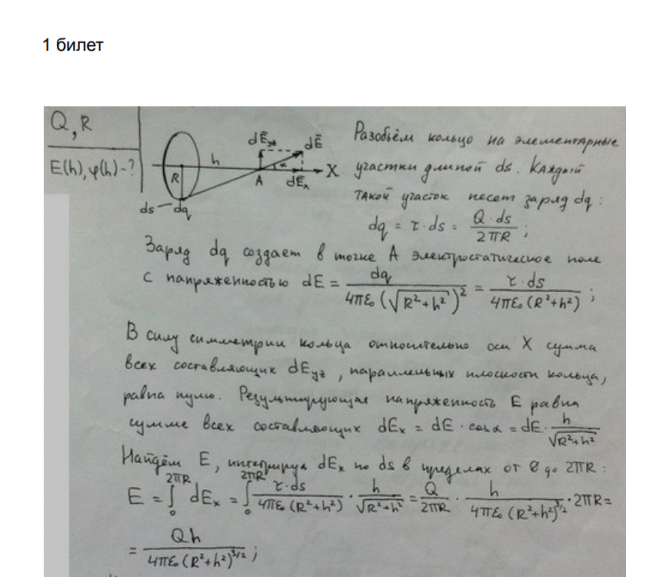 1 билет
Q, R
E(h), φ(h) - ?
dE⃗yz dE⃗
h
R A α dE⃗x X
ds dq
Разобьём кольцо на элементарные
участки длиной ds. Каждый
такой участок несет заряд dq:
dq = τ·ds = Q·ds / 2πR ;
Заряд dq создает в точке A электростатическое поле
с напряженностью dE = dq / 4πε₀(√(R²+h²))² = τ·ds / 4πε₀(R²+h²) ;
В силу симметрии кольца относительно оси X сумма
всех составляющих dEyz, параллельных плоскости кольца,
равна нулю. Результирующая напряженность E равна
сумме всех составляющих dEx = dE·cosα = dE·h / √(R²+h²)
Найдём E, интегрируя dEx по ds в пределах от 0 до 2πR:
E = ∫₀^2πR dEx = ∫₀^2πR τ·ds / 4πε₀(R²+h²) · h / √(R²+h²) = Q / 2πR · h / 4πε₀(R²+h²)^3/2 · 2πR =
= Qh / 4πε₀(R²+h²)^3/2 ;